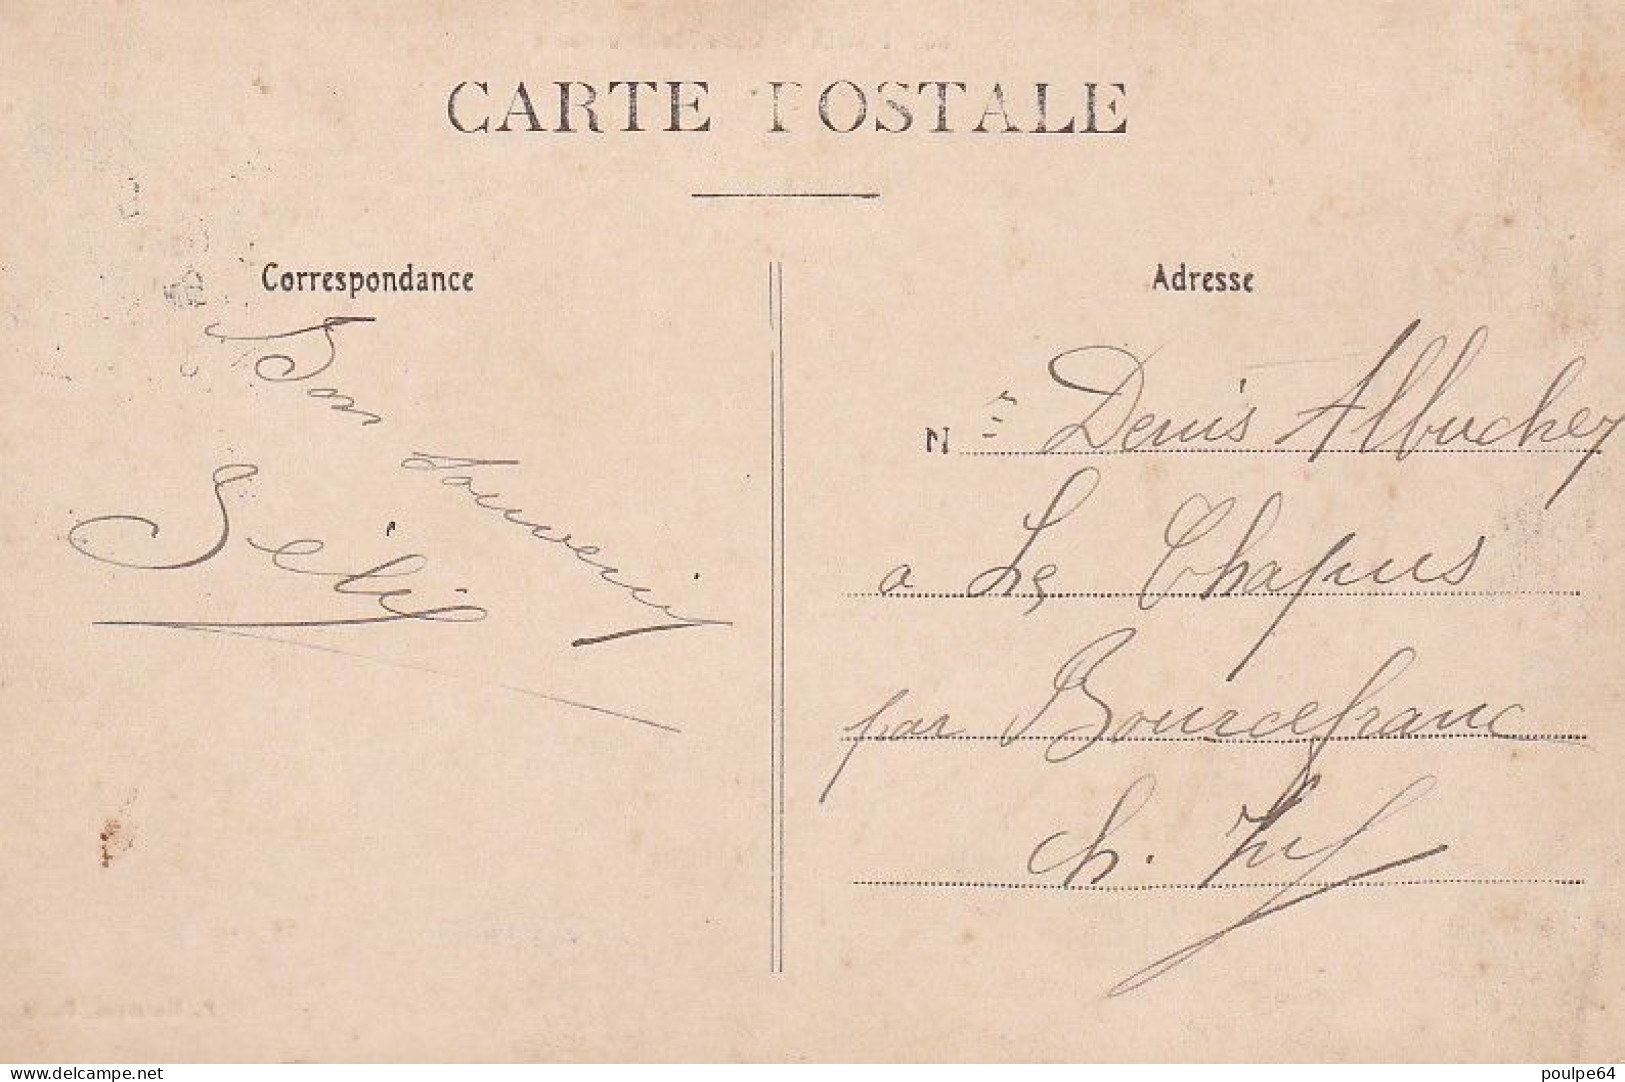 CARTE POSTALE
Correspondance
Bon
Souvenir
Adresse
Mr Denis Albucher
a Le Chapus
par Bourcefranc
Ch. Inf
delcampe.net
poulpe64